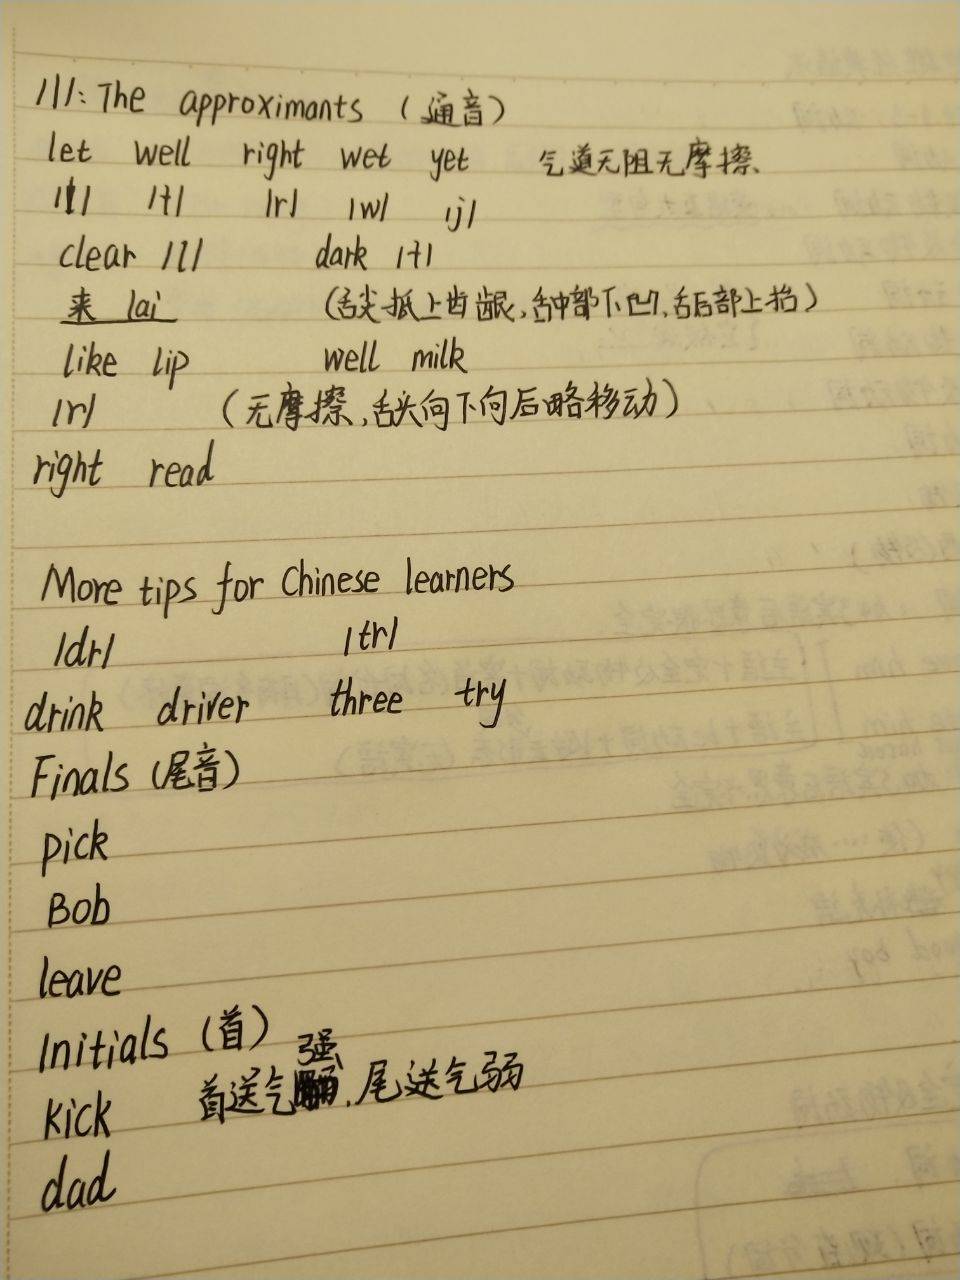 /l/: The approximants (通音)
let well right wet yet 气道无阻无摩擦、
/l/ /ɫ/ /r/ /w/ /j/
clear /l/ dark /ɫ/
来 lai (舌尖抵上齿龈,舌中部下凹,舌后部上抬)
like lip well milk
/r/ (无摩擦,舌头向下向后略移动)
right read
More tips for Chinese learners
/dr/ /tr/
drink driver three try
Finals (尾音)
pick
Bob
leave
Initials (首)
kick 首送气强,尾送气弱
dad